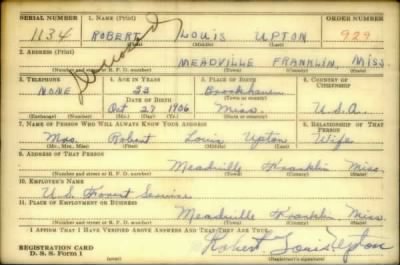 SERIAL NUMBER 1. NAME (Print) ORDER NUMBER
1134 ROBERT LOUIS UPTON 929
(First) (Middle) (Last)
2. ADDRESS (Print)
MEADVILLE FRANKLIN, MISS
(Number and street or R. F. D. number) (Town) (County) (State)
3. TELEPHONE 4. AGE IN YEARS 5. PLACE OF BIRTH 6. COUNTRY OF CITIZENSHIP
NONE 33 Brookhaven
DATE OF BIRTH (Town or county)
Oct 27 1906 Miss. U.S.A.
(Exchange) (Number) (Mo.) (Day) (Yr.) (State or country)
7. NAME OF PERSON WHO WILL ALWAYS KNOW YOUR ADDRESS 8. RELATIONSHIP OF THAT PERSON
Mrs. Robert Louis Upton Wife
(Mr., Mrs., Miss) (First) (Middle) (Last)
9. ADDRESS OF THAT PERSON
Meadville Franklin Miss.
(Number and street or R. F. D. number) (Town) (County) (State)
10. EMPLOYER'S NAME
U.S. Forest Service
11. PLACE OF EMPLOYMENT OR BUSINESS
Meadville Franklin Miss.
(Number and street or R. F. D. number) (Town) (County) (State)
I AFFIRM THAT I HAVE VERIFIED ABOVE ANSWERS AND THAT THEY ARE TRUE.
REGISTRATION CARD
D. S. S. Form 1 (over) Robert Louis Upton
(Registrant's signature)